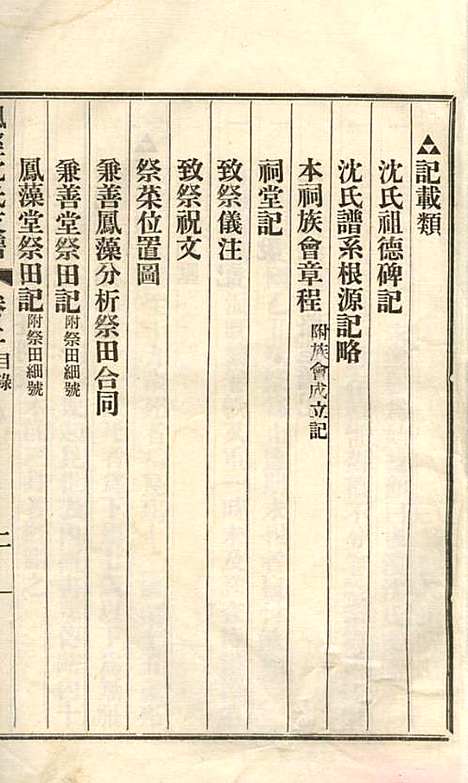 記載類
沈氏祖德碑記
沈氏譜系根源記略
本祠族會章程 附族會成立記
祠堂記
致祭儀注
致祭祝文
祭菜位置圖
兼善鳳藻分析祭田合同
兼善堂祭田記 附祭田細號
鳳藻堂祭田記 附祭田細號
目錄
二